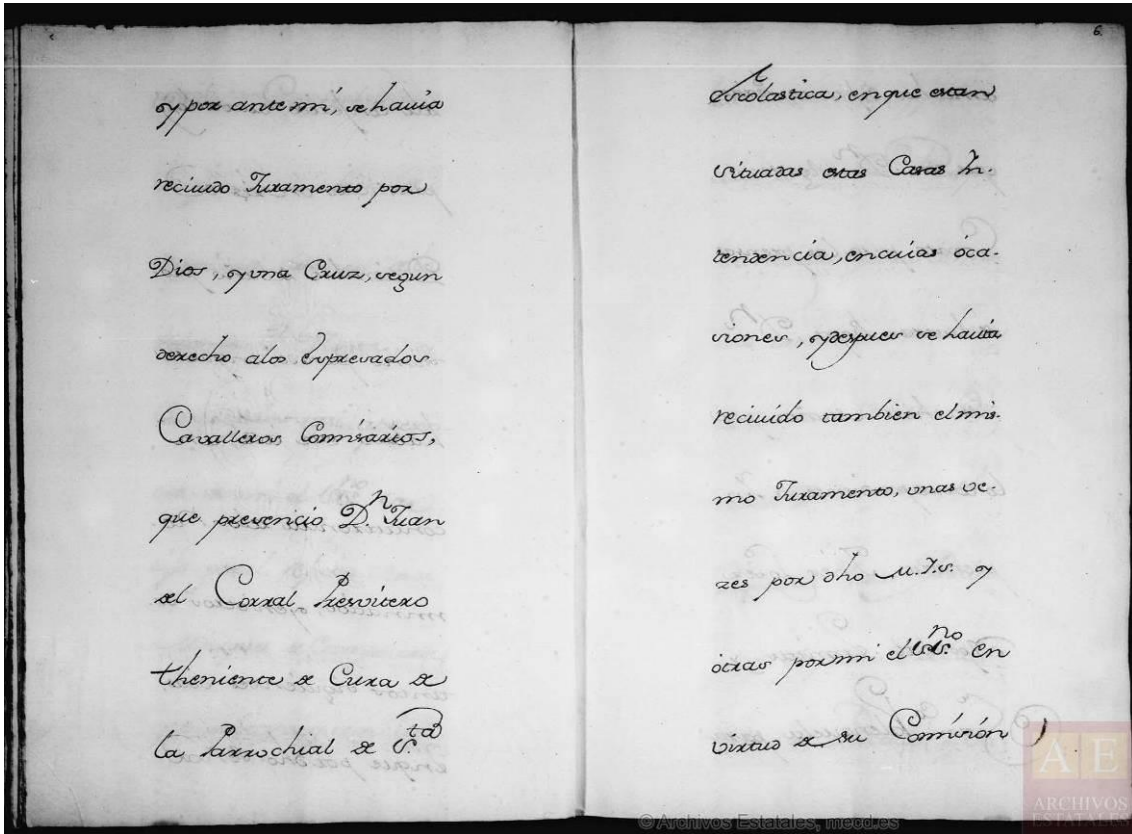 y por ante mí, se havia
reciuido Juramento por
Dios, y una Cruz, segun
derecho a los Expresados
Cavalleros Comisarios,
que presencio D.n Juan
del Corral Presvitero
theniente de Cura de
la Parrochial de S.ta
6
Escolastica, en que estan
situadas estas Casas In-
tendencia, en cuias oca-
siones, y despues se havia
reciuido tambien el mis-
mo Juramento, unas ve-
zes por dho U.I.S. y
otras por mi el Ess.no en
virtud de su Comisión
AE
ARCHIVOS
ESTATALES
© Archivos Estatales, mecd.es